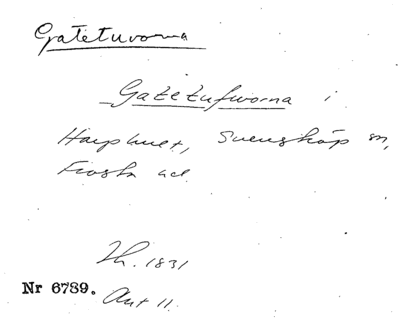 Gatetuvorna
Gatetufworna i
Harphuset, Svensköp sn,
Frosta hd.
Th. 1831
Nr 6789. Avt 11.